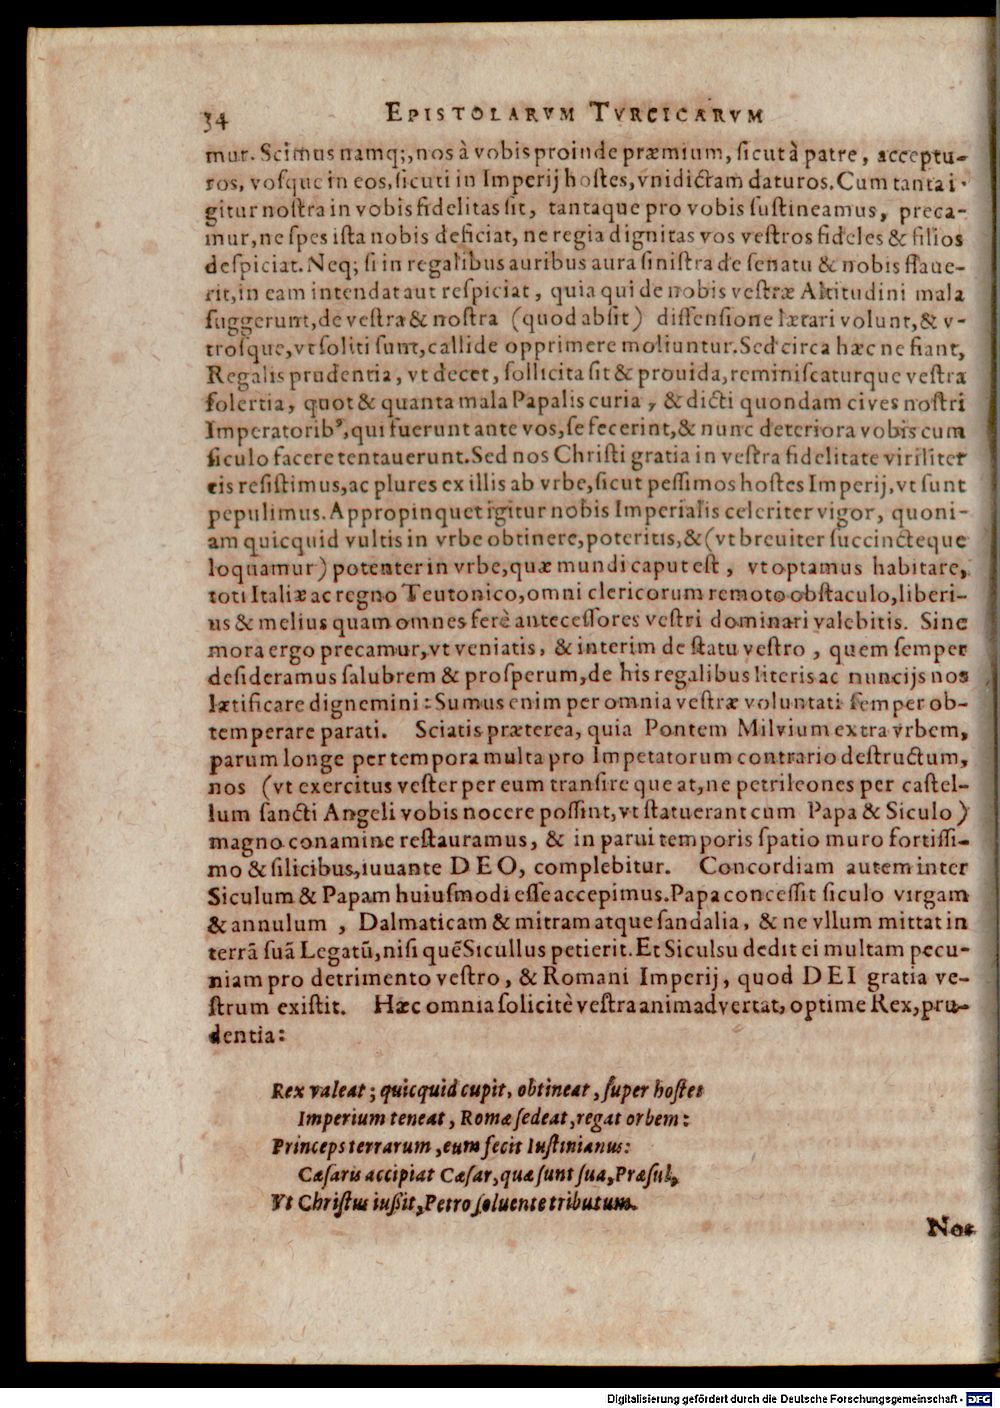 34 EPISTOLARVM TVRCICARVM
mur. Scimus namq;, nos à vobis proinde præmium, sicut à patre, acceptu-
ros, vosque in eos, sicuti in Imperij hostes, vnidictam daturos. Cum tanta i-
gitur nostra in vobis fidelitas sit, tantaque pro vobis sustineamus, preca-
mur, ne spes ista nobis deficiat, ne regia dignitas vos vestros fideles & filios
despiciat. Neq; si in regalibus auribus aura sinistra de senatu & nobis flaue-
rit, in eam intendat aut respiciat, quia qui de nobis vestræ Altitudini mala
suggerunt, de vestra & nostra (quod absit) dissensione lætari volunt, & v-
trosque, vt soliti sunt, callide opprimere moliuntur. Sed circa hæc ne fiant,
Regalis prudentia, vt decet, sollicita sit & prouida, reminiscaturque vestra
solertia, quot & quanta mala Papalis curia, & dicti quondam cives nostri
Imperatorib⁹, qui fuerunt ante vos, se fecerint, & nunc deteriora vobis cum
siculo facere tentauerunt. Sed nos Christi gratia in vestra fidelitate viriliter
eis resistimus, ac plures ex illis ab vrbe, sicut pessimos hostes Imperij, vt sunt
pepulimus. Appropinquet igitur nobis Imperialis celeriter vigor, quoni-
am quicquid vultis in vrbe obtinere, poteritis, & (vt breuiter succincteque
loquamur) potenter in vrbe, quæ mundi caput est, vt optamus habitare,
toti Italiæ ac regno Teutonico, omni clericorum remoto obstaculo, liberi-
us & melius quam omnes ferè antecessores vestri dominari valebitis. Sine
mora ergo precamur, vt veniatis, & interim de statu vestro, quem semper
desideramus salubrem & prosperum, de his regalibus literis ac nuncijs nos
lætificare dignemini: Sumus enim per omnia vestræ voluntati semper ob-
temperare parati. Sciatis præterea, quia Pontem Milvium extra vrbem,
parum longe per tempora multa pro Impetatorum contrario destructum,
nos (vt exercitus vester per eum transire queat, ne petrileones per castel-
lum sancti Angeli vobis nocere possint, vt statuerant cum Papa & Siculo)
magno conamine restauramus, & in parui temporis spatio muro fortissi-
mo & silicibus, iuuante DEO, complebitur. Concordiam autem inter
Siculum & Papam huiusmodi esse accepimus. Papa concessit siculo virgam
& annulum, Dalmaticam & mitram atque sandalia, & ne vllum mittat in
terrã suã Legatũ, nisi quẽ Sicullus petierit. Et Siculsu dedit ei multam pecu-
niam pro detrimento vestro, & Romani Imperij, quod DEI gratia ve-
strum existit. Hæc omnia solicitè vestra animadvertat, optime Rex, pru-
dentia:
Rex valeat; quicquid cupit, obtineat, super hostes
Imperium teneat, Romæ sedeat, regat orbem:
Princeps terrarum, eum fecit Iustinianus:
Cæsaris accipiat Cæsar, quæ sunt sua, Præsul,
Vt Christus iußit, Petro soluente tributum.
Nos
Digitalisierung gefördert durch die Deutsche Forschungsgemeinschaft - DFG